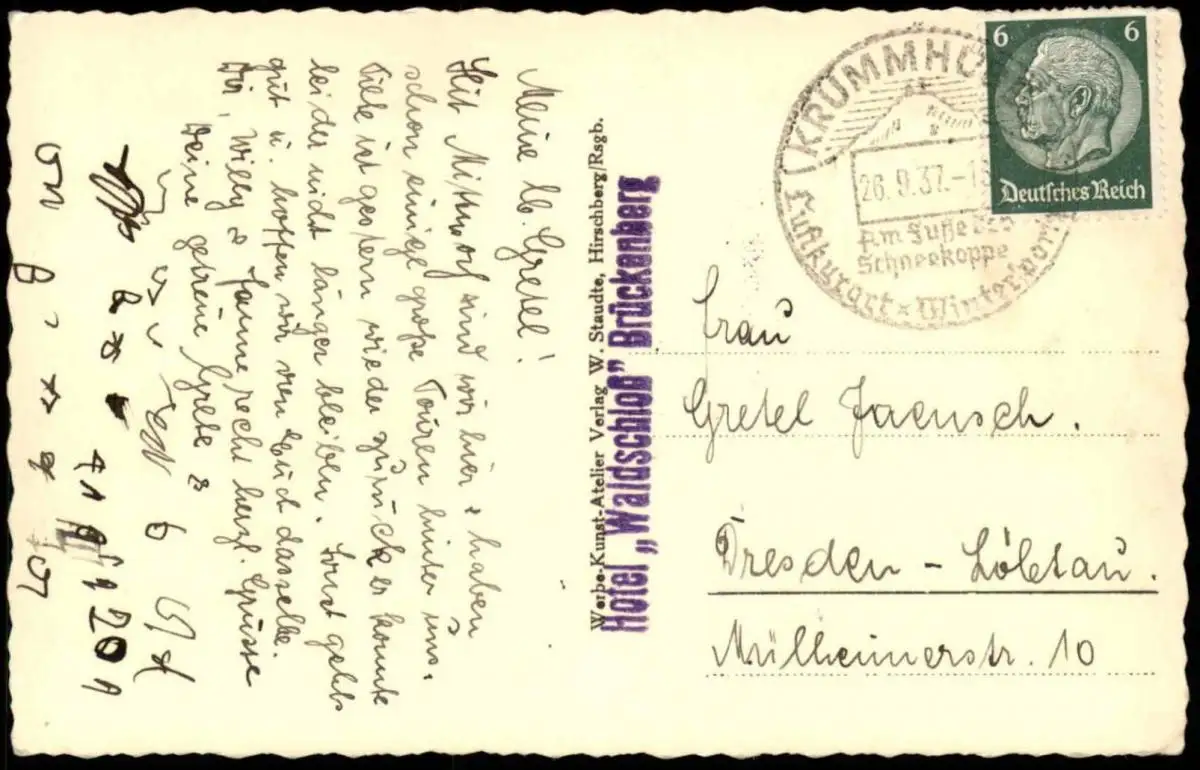 Meine lb. Gretel!
Seit Mittwoch sind wir hier u. haben
schon einige große Touren hinter uns.
Tiele ist gestern wieder zurück er konnte
leider nicht länger bleiben. Sonst gehts
gut u. hoffen wir von Euch dasselbe.
Dir, Willy u. Hanne recht herzl. Grüsse
Deine getreue Grete
Werbe-Kunst-Atelier Verlag W. Staudte, Hirschberg/Rsgb.
Hotel „Waldschloß" Brückenberg
KRUMMHÜ
26.9.37.-1
Am Fuße der
Schneekoppe
Luftkurort × Wintersport
6 6
Deutsches Reich
Frau
Gretel Jaensch.
Dresden - Löbtau.
Mülheimerstr. 10